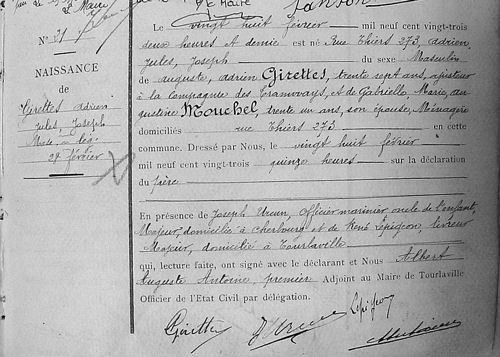 Le vingt huit février mil neuf cent vingt-trois
N° 31
deux heures et demie est né Rue Thiers 273, adrien,
Jules, Joseph du sexe Masculin
NAISSANCE
de
Girettes adrien
Jules, Joseph
27 février
de auguste, adrien Girettes, trente sept ans, ajusteur
à la Compagnie des Tramways, et de Gabrielle Marie, au
gustine Mouchel, trente un ans, son épouse, Ménagère
domiciliés rue Thiers 273 en cette
commune. Dressé par Nous, le vingt huit février
mil neuf cent vingt-trois quinze heures sur la déclaration
du père
En présence de Joseph officier marinier oncle de l'enfant,
Majeur, domicilié à Cherbourg et de René Lepigeon, livreur
Majeur, domicilié à Tourlaville
qui, lecture faite, ont signé avec le déclarant et Nous Albert
Auguste Antoine premier Adjoint au Maire de Tourlaville
Officier de l'Etat Civil par délégation.
Girettes
Lepigeon